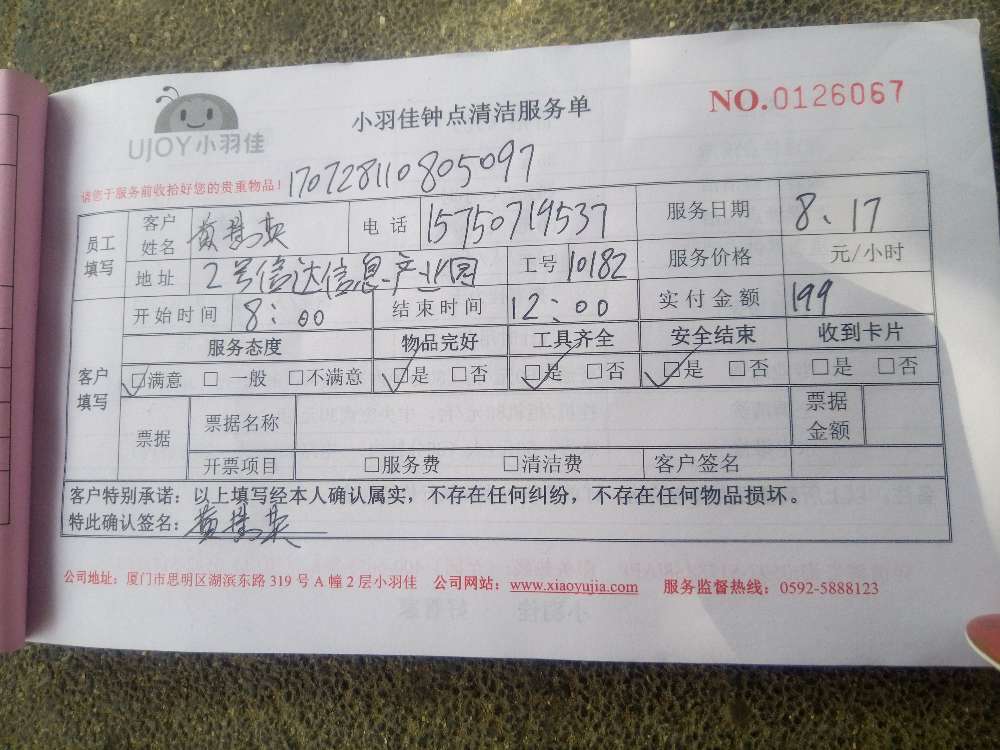 UJOY小羽佳
小羽佳钟点清洁服务单
NO.0126067
请您于服务前收拾好您的贵重物品！170728110805097
员工填写 客户姓名 黄 英 电话 15750719537 服务日期 8、17
地址 2号信达信息产业园 工号 10182 服务价格 元/小时
开始时间 8：00 结束时间 12：00 实付金额 199
客户填写 服务态度 物品完好 工具齐全 安全结束 收到卡片
☑满意 □一般 □不满意 ☑是 □否 ☑是 □否 ☑是 □否 □是 □否
票据 票据名称 票据金额
开票项目 □服务费 □清洁费 客户签名
客户特别承诺：以上填写经本人确认属实，不存在任何纠纷，不存在任何物品损坏。
特此确认签名：黄 英
公司地址：厦门市思明区湖滨东路 319 号 A 幢 2 层小羽佳 公司网站：www.xiaoyujia.com 服务监督热线：0592-5888123